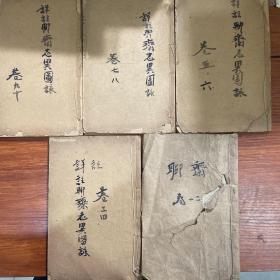 詳註聊齋志異圖詠
卷九十
詳註聊齋志異圖詠
卷七八
詳註聊齋志異圖詠
卷五·六
詳註聊齋志異圖詠
卷三四
聊齋
卷一二